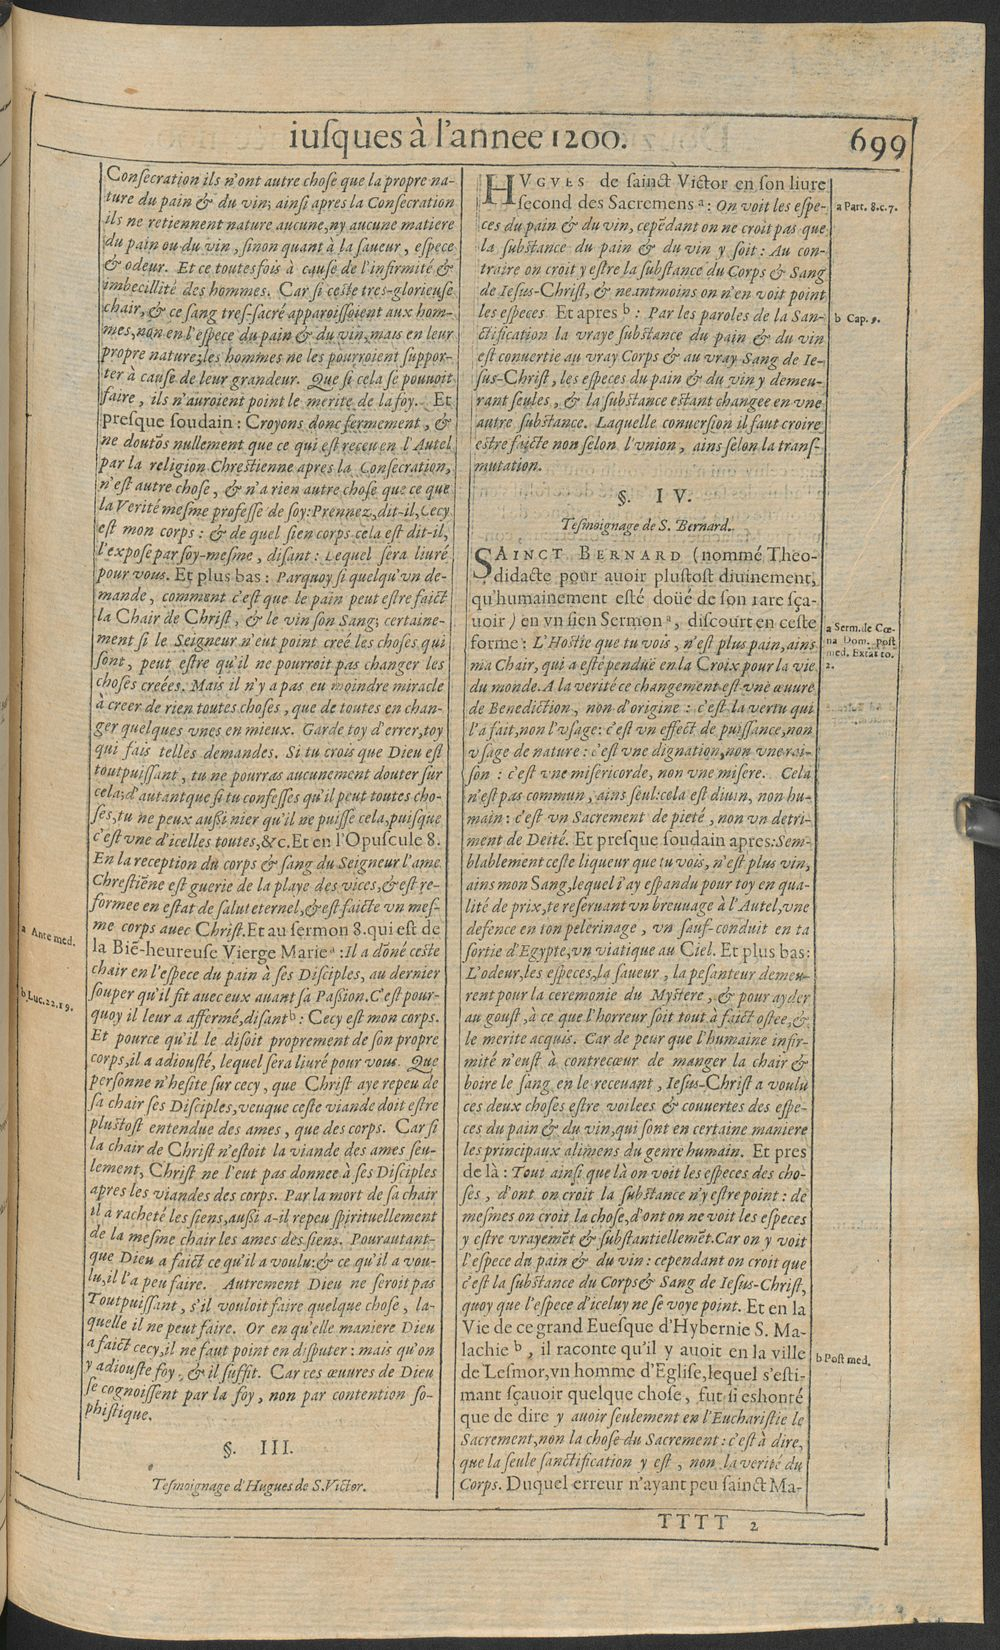 iusques à l'annee 1200. 699
Consecration ils n'ont autre chose que la propre na-
ture du pain & du vin; ainsi apres la Consecration
ils ne retiennent nature aucune, ny aucune matiere
du pain ou du vin, sinon quant à la saueur, espece
& odeur. Et ce toutesfois à cause de l'infirmité &
imbecillité des hommes. Car si ceste tres-glorieuse
chair, & ce sang tres-sacré apparoissoient aux hom-
mes, non en l'espece du pain & du vin, mais en leur
propre nature; les hommes ne les pourroient suppor-
ter à cause de leur grandeur. Que si cela se pouuoit
faire, ils n'auroient point le merite de la foy. Et
presque soudain: Croyons donc fermement, &
ne doutõs nullement que ce qui est receu en l'Autel
par la religion Chrestienne apres la Consecration,
n'est autre chose, & n'a rien autre chose que ce que
la Verité mesme professe de soy: Prennez, dit-il, Cecy
est mon corps: & de quel sien corps cela est dit-il,
l'expose par soy-mesme, disant: Lequel sera liuré
pour vous. Et plus bas: Parquoy si quelqu'vn de-
mande, comment c'est que le pain peut estre faict
la Chair de Christ, & le vin son Sang; certaine-
ment si le Seigneur n'eut point creé les choses qui
sont, peut estre qu'il ne pourroit pas changer les
choses creées. Mais il n'y a pas eu moindre miracle
à creer de rien toutes choses, que de toutes en chan-
ger quelques vnes en mieux. Garde toy d'errer, toy
qui fais telles demandes. Si tu crois que Dieu est
toutpuissant, tu ne pourras aucunement douter sur
cela; d'autant que si tu confesses qu'il peut toutes cho-
ses, tu ne peux aussi nier qu'il ne puisse cela, puisque
c'est vne d'icelles toutes, &c. Et en l'Opuscule 8.
En la reception du corps & sang du Seigneur l'ame
Chrestiẽne est guerie de la playe des vices, & est re-
formee en estat de salut eternel, & est faicte vn mes-
me corps auec Christ. Et au sermon 8. qui est de
la Biẽ-heureuse Vierge Marie a: Il a dõné ceste
chair en l'espece du pain à ses Disciples, au dernier
souper qu'il fit auec eux auant sa Passion. C'est pour-
quoy il leur a affermé, disant b: Cecy est mon corps.
Et pource qu'il le disoit proprement de son propre
corps, il a adiousté, lequel sera liuré pour vous. Que
personne n'hesite sur cecy, que Christ aye repeu de
sa chair ses Disciples, veu que ceste viande doit estre
plustost entendue des ames, que des corps. Car si
la chair de Christ n'estoit la viande des ames seu-
lement, Christ ne l'eut pas donnee à ses Disciples
apres les viandes des corps. Par la mort de sa chair
il a racheté les siens, aussi a-il repeu spirituellement
de la mesme chair les ames des siens. Pourautant-
que Dieu a faict ce qu'il a voulu: & ce qu'il a vou-
lu, il l'a peu faire. Autrement Dieu ne seroit pas
Toutpuissant, s'il vouloit faire quelque chose, la-
quelle il ne peut faire. Or en qu'elle maniere Dieu
a faict cecy, il ne faut point en disputer: mais qu'on
y adiouste foy, & il suffit. Car ces œuures de Dieu
se cognoissent par la foy, non par contention so-
phistique.
§. III.
Tesmoignage d'Hugues de S. Victor.
a Ante med.
b Luc. 22. 19.
HVGVES de sainct Victor en son liure
second des Sacremens a: On voit les espe-
ces du pain & du vin, cepẽdant on ne croit pas que
la substance du pain & du vin y soit: Au con-
traire on croit y estre la substance du Corps & Sang
de Iesus-Christ, & neantmoins on n'en voit point
les especes. Et apres b: Par les paroles de la San-
ctification la vraye substance du pain & du vin
est conuertie au vray Corps & au vray Sang de Ie-
sus-Christ, les especes du pain & du vin y demeu-
rant seules, & la substance estant changee en vne
autre substance. Laquelle conuersion il faut croire
estre faicte non selon l'vnion, ains selon la trans-
mutation.
§. IV.
Tesmoignage de S. Bernard.
SAINCT BERNARD (nommé Theo-
didacte pour auoir plustost diuinement,
qu'humainement esté doüé de son rare sça-
uoir) en vn sien Sermon a, discourt en ceste
forme: L'Hostie que tu vois, n'est plus pain, ains
ma Chair, qui a esté penduë en la Croix pour la vie
du monde. A la verité ce changement est vne œuure
de Benediction, non d'origine: c'est la vertu qui
l'a fait, non l'vsage: c'est vn effect de puissance, non
vsage de nature: c'est vne dignation, non vne rai-
son: c'est vne misericorde, non vne misere. Cela
n'est pas commun, ains seul: cela est diuin, non hu-
main: c'est vn Sacrement de pieté, non vn detri-
ment de Deité. Et presque soudain apres: Sem-
blablement ceste liqueur que tu vois, n'est plus vin,
ains mon Sang, lequel i'ay espandu pour toy en qua-
lité de prix, te reseruant vn breuuage à l'Autel, vne
defence en ton pelerinage, vn sauf-conduit en ta
sortie d'Egypte, vn viatique au Ciel. Et plus bas:
L'odeur, les especes, la saueur, la pesanteur demeu-
rent pour la ceremonie du Mystere, & pour ayder
au goust, à ce que l'horreur soit tout à faict ostee, &
le merite acquis. Car de peur que l'humaine infir-
mité n'eust à contrecœur de manger la chair &
boire le sang en le receuant, Iesus-Christ a voulu
ces deux choses estre voilees & couuertes des espe-
ces du pain & du vin, qui sont en certaine maniere
les principaux alimens du genre humain. Et pres
de là: Tout ainsi que là on voit les especes des cho-
ses, d'ont on croit la substance n'y estre point: de
mesmes on croit la chose, d'ont on ne voit les especes
y estre vrayemẽt & substantiellemẽt. Car on y voit
l'espece du pain & du vin: cependant on croit que
c'est la substance du Corps & Sang de Iesus-Christ,
quoy que l'espece d'iceluy ne se voye point. Et en la
Vie de ce grand Euesque d'Hybernie S. Ma-
lachie b, il raconte qu'il y auoit en la ville
de Lesmor, vn homme d'Eglise, lequel s'esti-
mant sçauoir quelque chose, fut si eshonté
que de dire y auoir seulement en l'Eucharistie le
Sacrement, non la chose du Sacrement: c'est à dire,
que la seule sanctification y est, non la verité du
Corps. Duquel erreur n'ayant peu sainct Ma-
a Part. 8. c. 7.
b Cap. 9.
a Serm. de Cœ-
na Dom. post
med. Extat to.
2.
b Post med.
TTTT 2